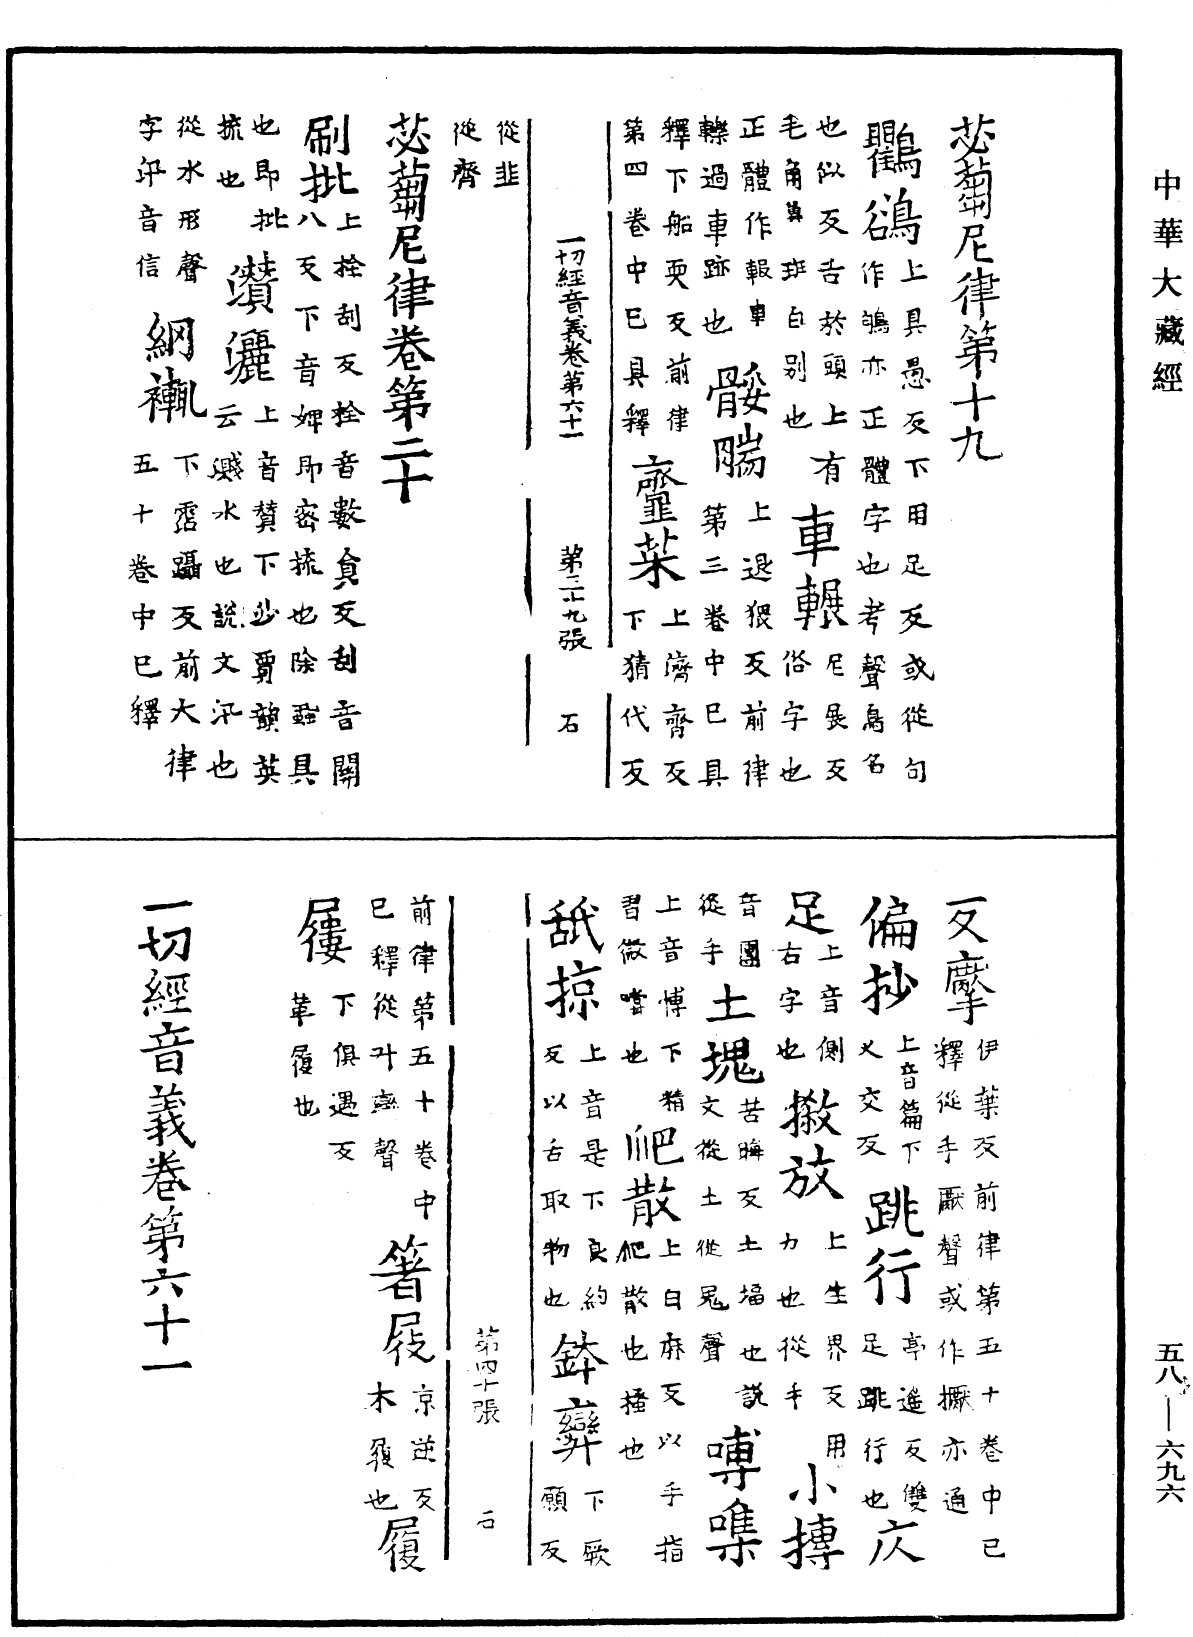 中華大藏經
苾蒭尼律第十九
鸜鵒上具愚反下用足反或從句作鴝亦正體字也考聲鳥名
也似反舌於頭上有毛角其斑白别也車輾尼展反俗字也
正體作報車轢過車跡也骽腨上退猥反前律第三卷中已具
釋下船耎反前律第四卷中已具釋虀菜上濟齊反下猜代反
一切經音義卷第六十一 第三十九張 石
從韭從齊
苾蒭尼律卷第二十
刷批上拴刮反拴音數負反刮音關八反下音婢即密梳也除蝨具
也即批梳也灒灑上音賛下沙賈韻英云濺水也說文汛也
從水形聲字卂音信網䩞下霑躡反前大律五十卷中已釋
一攴擪伊葉反前律第五十卷中已釋從手厭聲或作擫亦通
偏抄上音篇下乂交反跳行亭遥反雙足跳行也仄
足上音側右字也撒放上生界反用力也從手小摶
音團從手土塊苦晦反土堛也說文從土從鬼聲嚩噍
上音博下精習微嘗也爬散上白麻反以手指爬散也搔也
舐掠上音是下良約反以舌取物也鉢𢍆下厥願反
第四十張 石
前律第五十卷中已釋從廾䜌聲著屐京逆反木履也履
屨下俱遇反革履也
一切經音義卷第六十一
五八—六九六